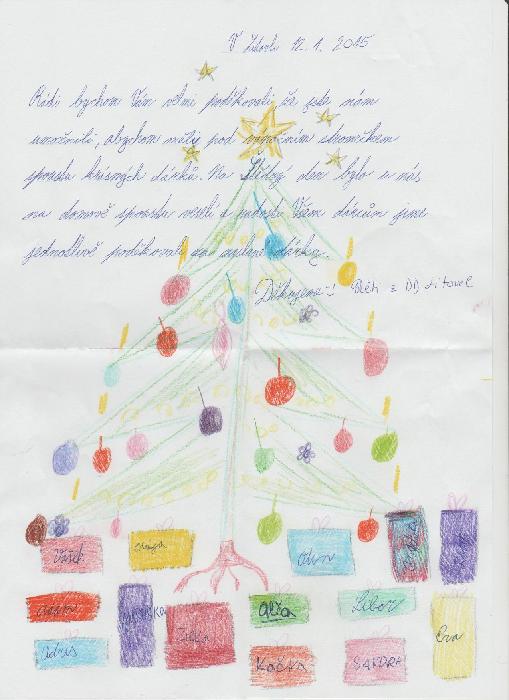 V Litovli 12.1. 2015
Rádi bychom Vám velmi poděkovali, že jste nám
umožnili, abychom měli pod vánočním stromečkem
spousta krásných dárků. Na Štědrý den bylo u nás
na domově spousta veselí a radosti. Všem dárcům jsme
jednotlivě poděkovali za milé dárky.
Děkujeme! Děti z DD Litovel
Vašek
Adris
Alča
Kačka
Libor
SANDRA
Eva